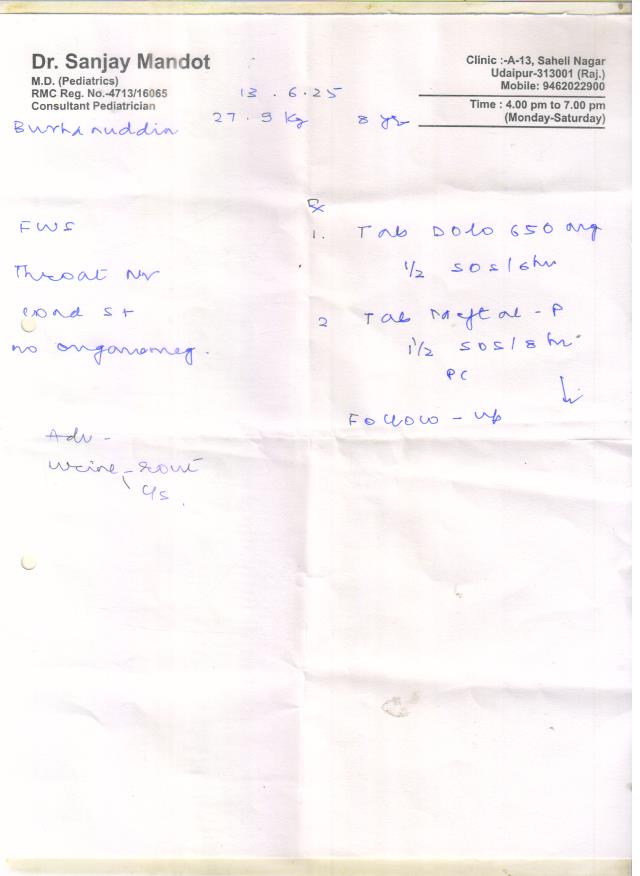 Dr. Sanjay Mandot
M.D. (Pediatrics)
RMC Reg. No.-4713/16065
Consultant Pediatrician
Clinic :-A-13, Saheli Nagar
Udaipur-313001 (Raj.)
Mobile: 9462022900
Time : 4.00 pm to 7.00 pm
(Monday-Saturday)
13.6.25
Burhanuddin
27.9 kg
8 yr
FWS
Throat Nr
cond st
no organomeg.
Adv -
Urine - rout
c/s
Rx
1. Tab Dolo 650 mg
1/2 SOS/6hr
2 Tab Meftal - P
1 1/2 SOS/8hr
PC
Follow - up